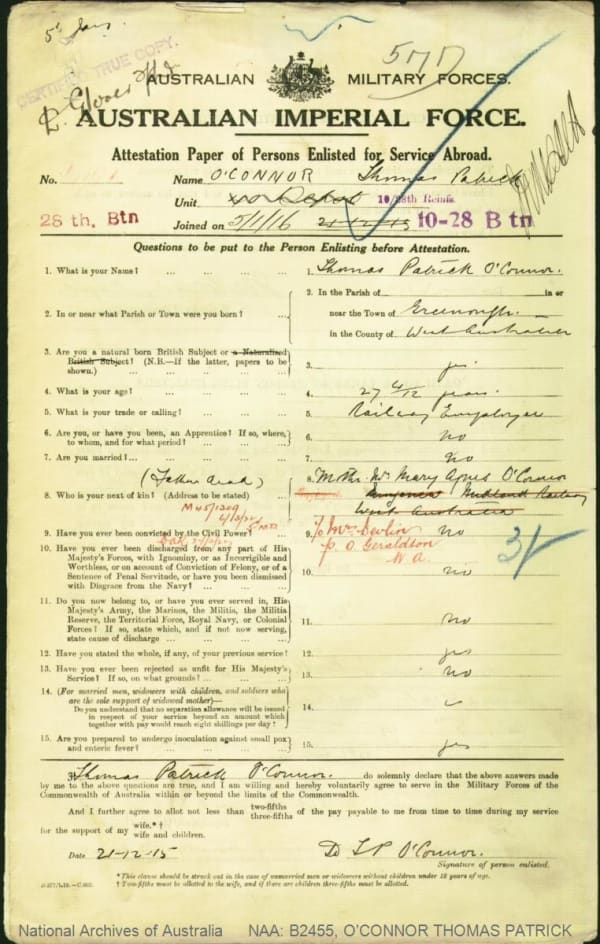 5th Jany
CERTIFIED TRUE COPY.
577
AUSTRALIAN MILITARY FORCES.
AUSTRALIAN IMPERIAL FORCE.
Attestation Paper of Persons Enlisted for Service Abroad.
No. Name O'CONNOR Thomas Patrick
Unit Depot 10/28th Reinfs.
28 th, Btn Joined on 5/1/16 21-12-15 10-28 B tn
Questions to be put to the Person Enlisting before Attestation.
1. What is your Name? ... ... ... ... 1. Thomas Patrick O'Connor.
2. In or near what Parish or Town were you born? ... 2. In the Parish of in or
near the Town of Greenough.
in the County of West Australia
3. Are you a natural born British Subject or a Naturalised
British Subject? (N.B.—If the latter, papers to be
shown.) ... ... ... ... ... 3. yes
4. What is your age? ... ... ... ... 4. 27 4/12 years.
5. What is your trade or calling? ... ... ... 5. Railway Employee
6. Are you, or have you been, an Apprentice? If so, where,
to whom, and for what period? ... ... 6. no
7. Are you married? ... ... ... ... 7. No
(Father dead)
8. Who is your next of kin? (Address to be stated) ... 8. Mother Mrs Mary Agnes O'Connor
Midland Railway
West Australia
c/o Mrs Devlin
P.O. Geraldton
W A.
9. Have you ever been convicted by the Civil Power? ... 9. No
3/-
10. Have you ever been discharged from any part of His
Majesty's Forces, with Ignominy, or as Incorrigible and
Worthless, or on account of Conviction of Felony, or of a
Sentence of Penal Servitude, or have you been dismissed
with Disgrace from the Navy? ... ... ... 10. no
11. Do you now belong to, or have you ever served in, His
Majesty's Army, the Marines, the Militia, the Militia
Reserve, the Territorial Force, Royal Navy, or Colonial
Forces? If so, state which, and if not now serving,
state cause of discharge ... ... ... 11. no
12. Have you stated the whole, if any, of your previous service? 12. yes
13. Have you ever been rejected as unfit for His Majesty's
Service? If so, on what grounds? ... ... 13. no
14. (For married men, widowers with children, and soldiers who
are the sole support of widowed mother)—
Do you understand that no separation allowance will be issued
in respect of your service beyond an amount which
together with pay would reach eight shillings per day? 14.
15. Are you prepared to undergo inoculation against small pox
and enteric fever? ... ... ... ... 15. yes
I, Thomas Patrick O'Connor. do solemnly declare that the above answers made
by me to the above questions are true, and I am willing and hereby voluntarily agree to serve in the Military Forces of the
Commonwealth of Australia within or beyond the limits of the Commonwealth.
And I further agree to allot not less than two-fifths three-fifths of the pay payable to me from time to time during my service
for the support of my wife.*† wife and children.
Date 21-12-15 T P O'Connor.
Signature of person enlisted.
* This clause should be struck out in the case of unmarried men or widowers without children under 18 years of age.
† Two-fifths must be allotted to the wife, and if there are children three-fifths must be allotted.
National Archives of Australia NAA: B2455, O'CONNOR THOMAS PATRICK